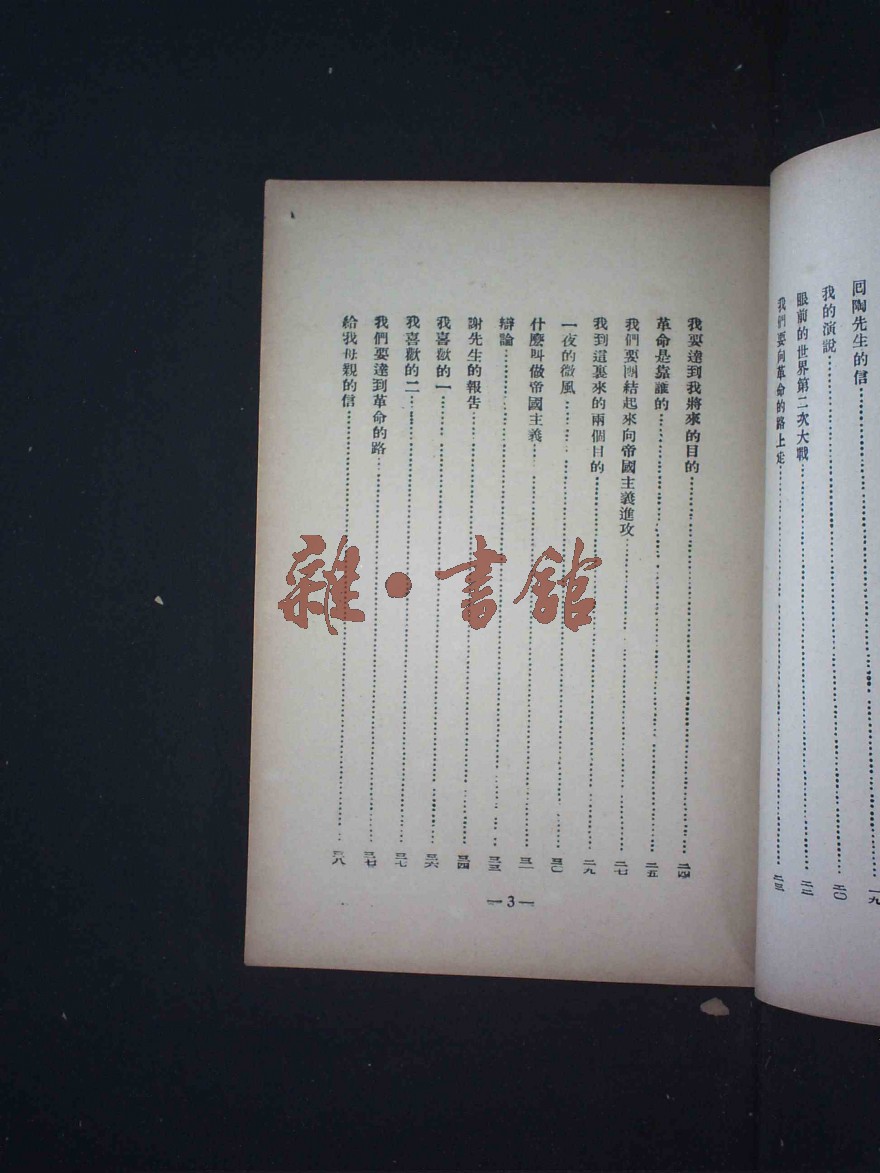 回陶先生的信 一九
我的演說 二〇
眼前的世界第二次大戰 二二
我們要向革命的路上走 二三
我要達到我將來的目的 二四
革命是靠誰的 二五
我們要團結起來向帝國主義進攻 二七
我到這裏來的兩個目的 二九
一夜的微風 三〇
什麼叫做帝國主義 三一
辯論 三三
謝先生的報告 三四
我喜歡的一 三六
我喜歡的二 三七
我們要達到革命的路 三七
給我母親的信 三八
—3—
雜·書館